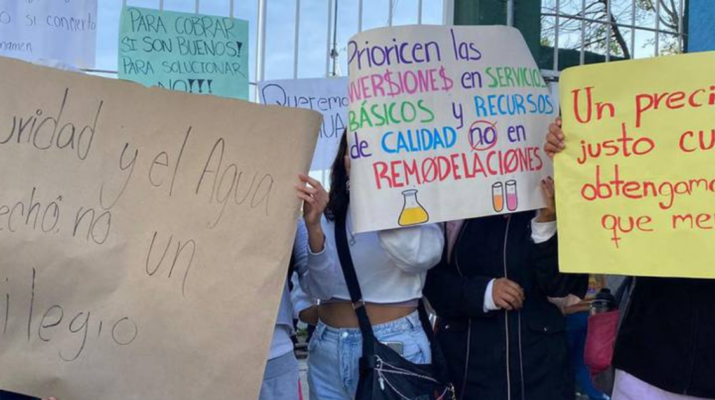 si concierto
namen
PARA COBRAR
SI SON BUENOS!
PARA SOLUCIONAR
NO!!!
Queremo
UA
uridad y el Agua
echo, no un
ilegio
PRioRicEN las
iNVER$IONE$ en SERVICIOS
BÁSICOS y RECURSOS
de CALIDAD no en
REMØDELACIØNES
Un preci
justo cu
obtengamo
que me